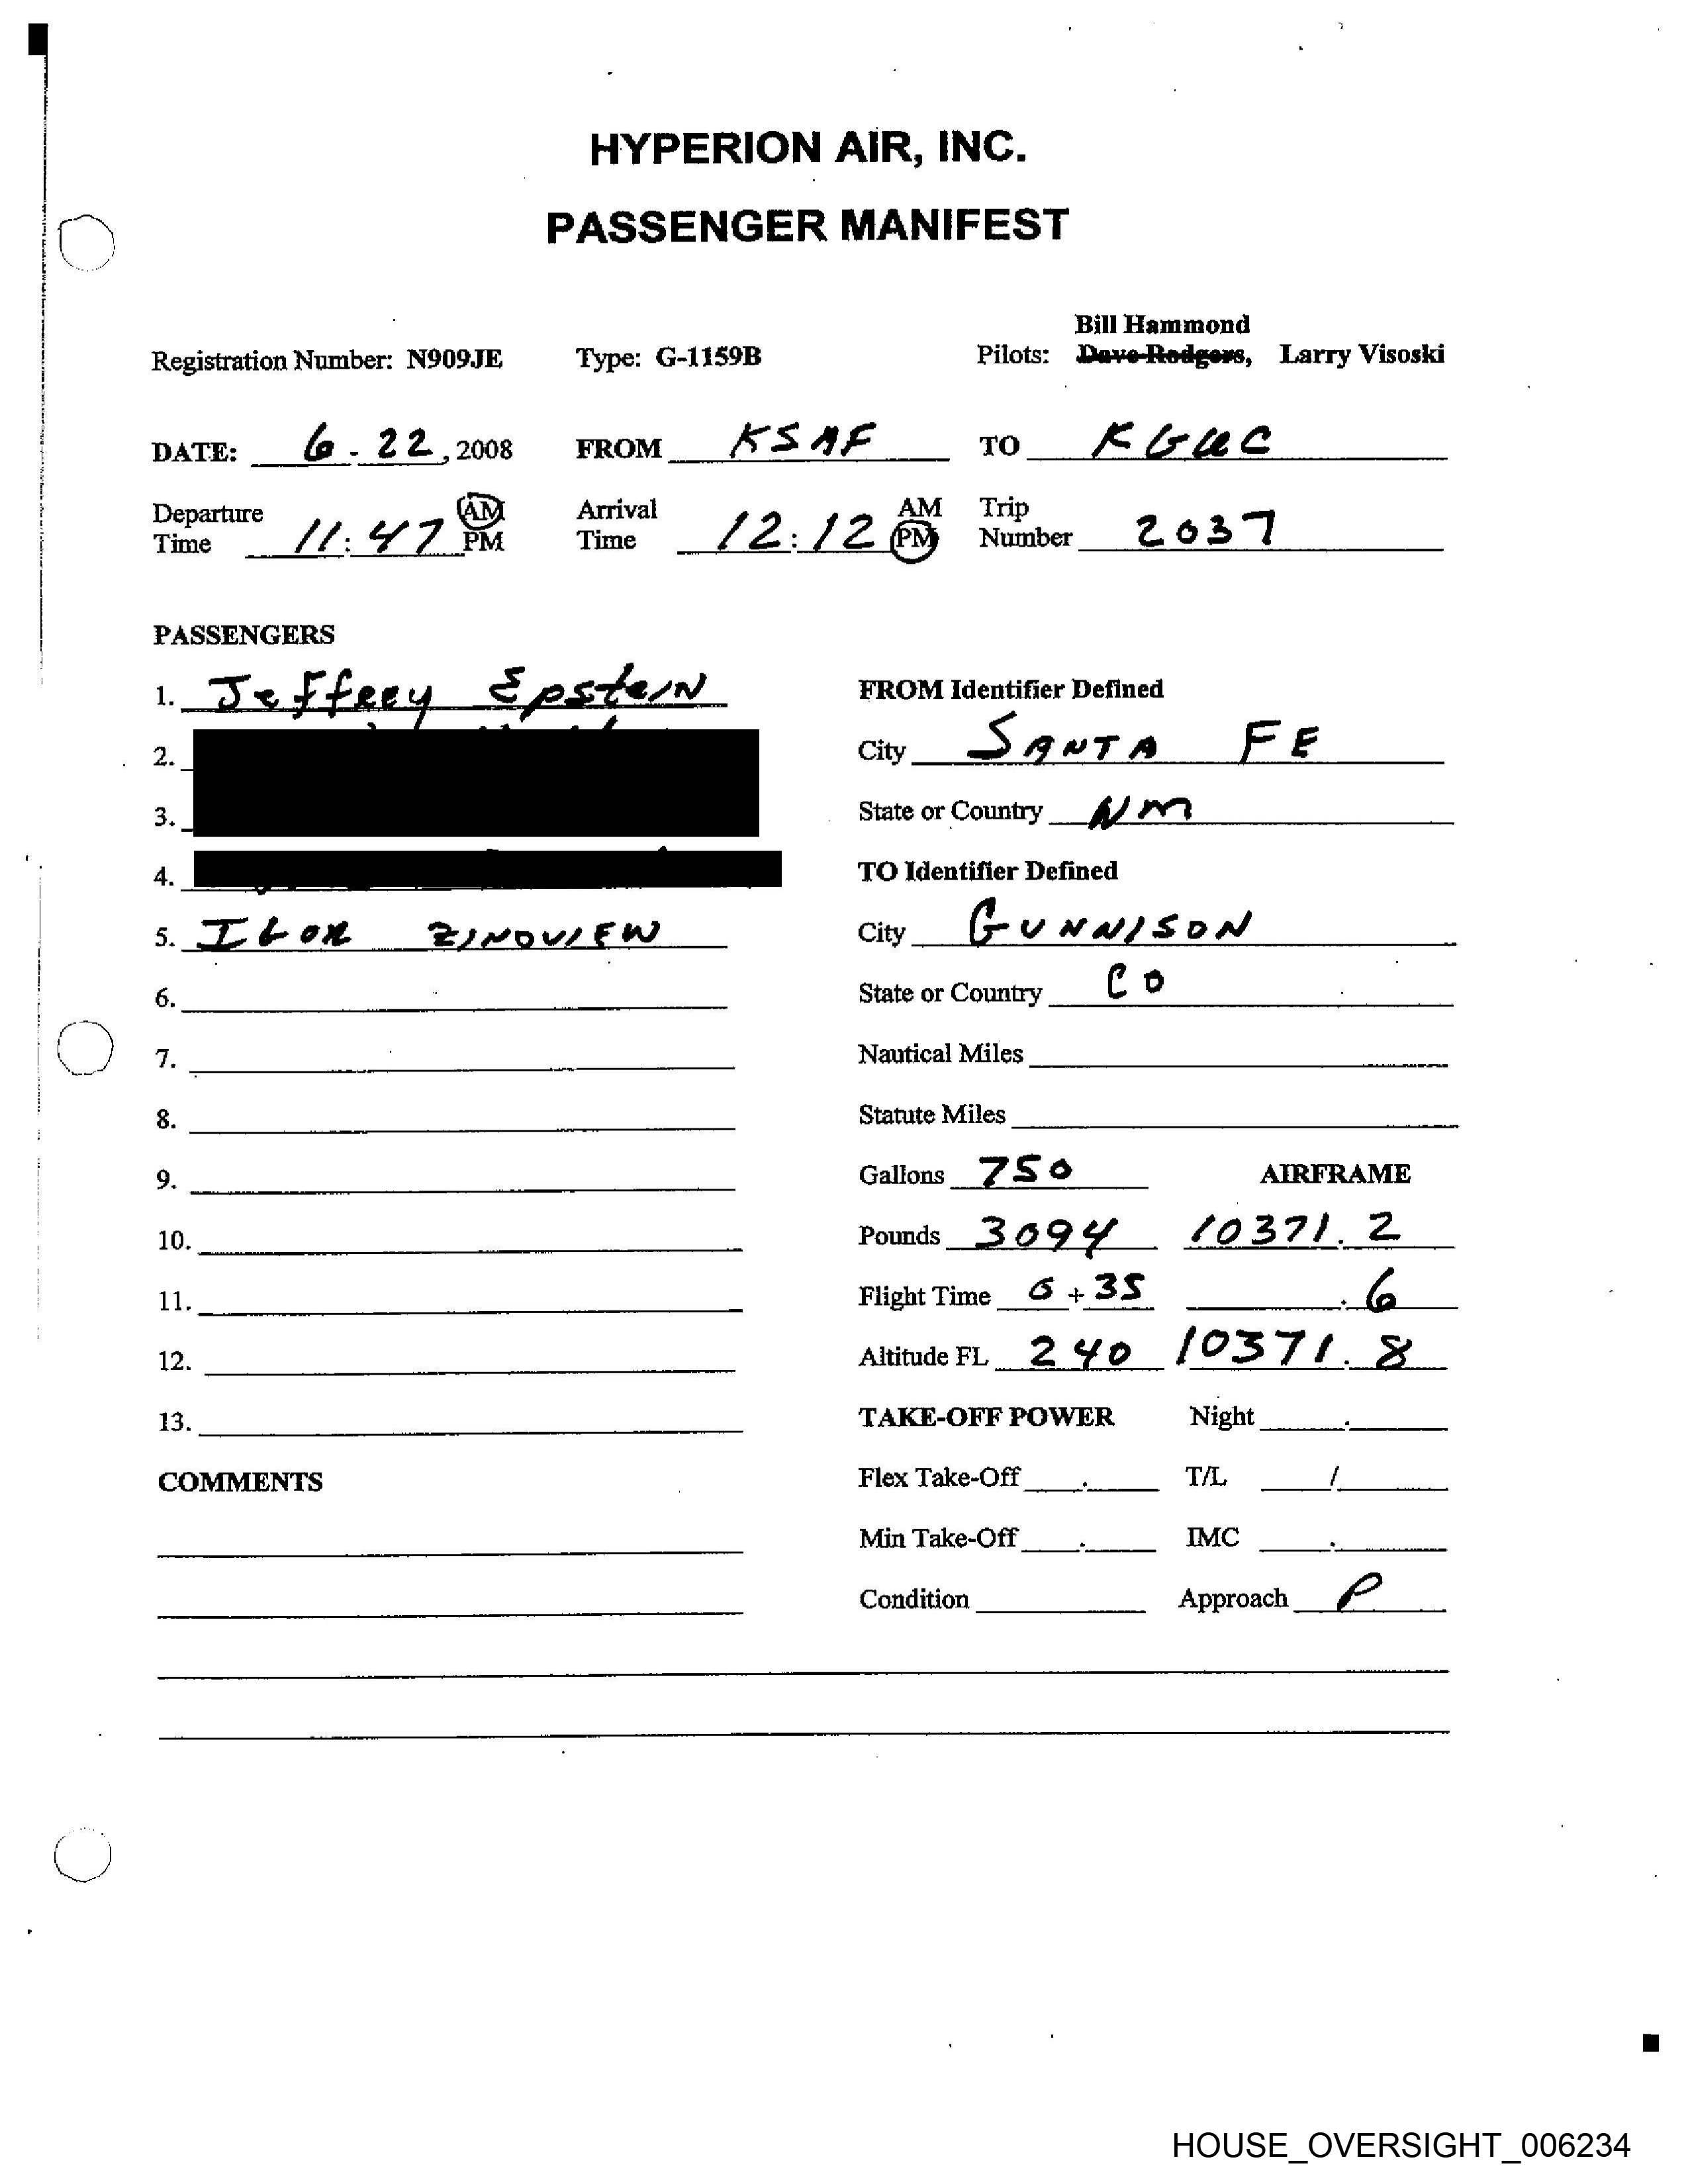 HYPERION AIR, INC.
PASSENGER MANIFEST
Bill Hammond
Registration Number: N909JE Type: G-1159B Pilots: Dave Rodgers, Larry Visoski
DATE: 6 - 22, 2008 FROM KSAF TO KGUC
Departure Time 11:47 AM PM Arrival Time 12:12 AM PM Trip Number 2037
PASSENGERS
1. Jeffrey Epstein
2.
3.
4.
5. IGOR ZINOVIEW
6.
7.
8.
9.
10.
11.
12.
13.
COMMENTS
FROM Identifier Defined
City SANTA FE
State or Country NM
TO Identifier Defined
City GUNNISON
State or Country CO
Nautical Miles
Statute Miles
Gallons 750 AIRFRAME
Pounds 3094 10371.2
Flight Time 0 + 35 .6
Altitude FL 240 10371.8
TAKE-OFF POWER Night
Flex Take-Off . T/L /
Min Take-Off . IMC .
Condition Approach P
HOUSE_OVERSIGHT_006234